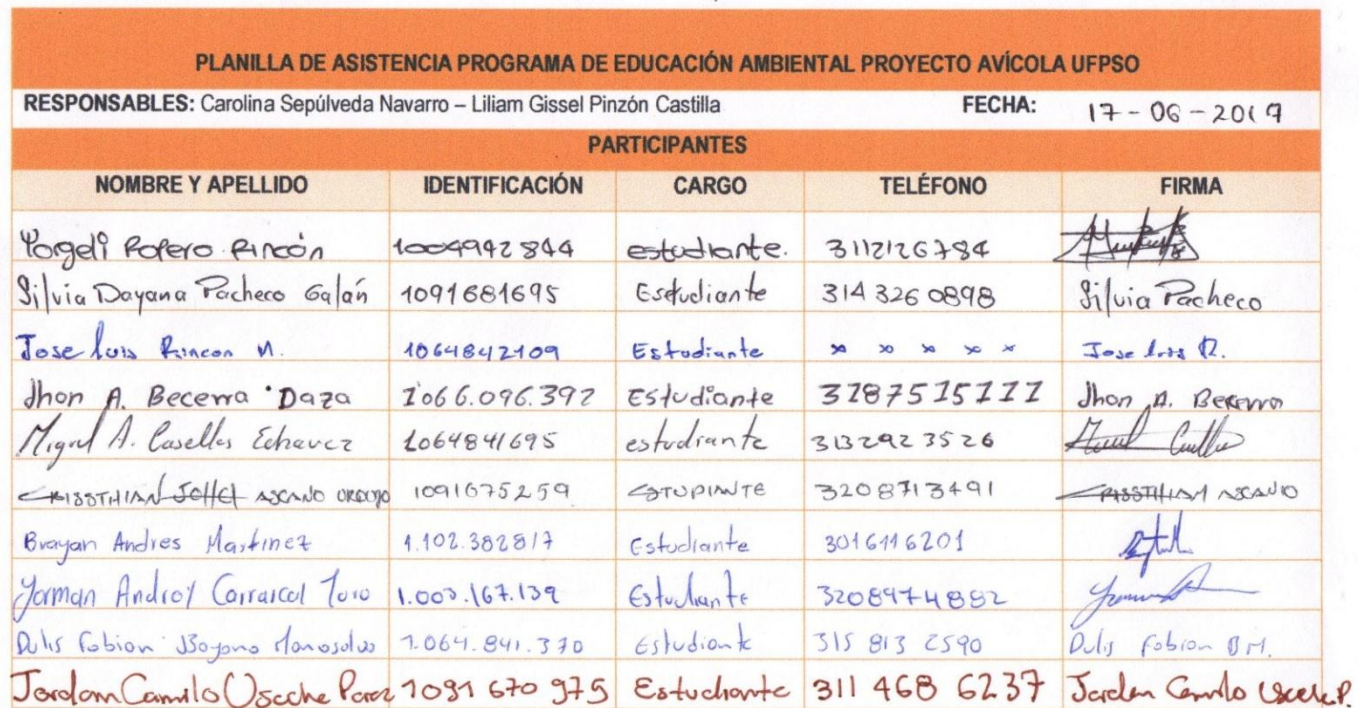 PLANILLA DE ASISTENCIA PROGRAMA DE EDUCACIÓN AMBIENTAL PROYECTO AVÍCOLA UFPSO
RESPONSABLES: Carolina Sepúlveda Navarro – Liliam Gissel Pinzón Castilla FECHA: 17-06-2019
PARTICIPANTES
NOMBRE Y APELLIDO IDENTIFICACIÓN CARGO TELÉFONO FIRMA
Yorgeli Ropero Rincón 1004942844 estudiante. 3112126784
Silvia Dayana Pacheco Galán 1091681695 Estudiante 314 326 0898 Silvia Pacheco
Jose luis Rincon M. 1064842109 Estudiante x x x x x Jose luis R.
Jhon A. Becerra Daza 1066.096.392 Estudiante 3187515111 Jhon A. Becerra
Miguel A. Casellas Echavez 1064841695 estudiante 3132923526
CRISSTHIAN ASCANIO 1091675259 ESTUDIANTE 3208713491 CRISSTHIAN ASCANIO
Brayan Andres Martinez 1.102.382817 Estudiante 3016116201
Yorman Carrascal Toro 1.003.167.139 Estudiante 3208974882
Dulis Fabian 1.064.841.370 Estudiante 315 813 2590 Dulis Fabian B M.
Jordam Camilo Useche Perez 1091 670 975 Estudiante 311 468 6237 Jordan Camilo Useche P.